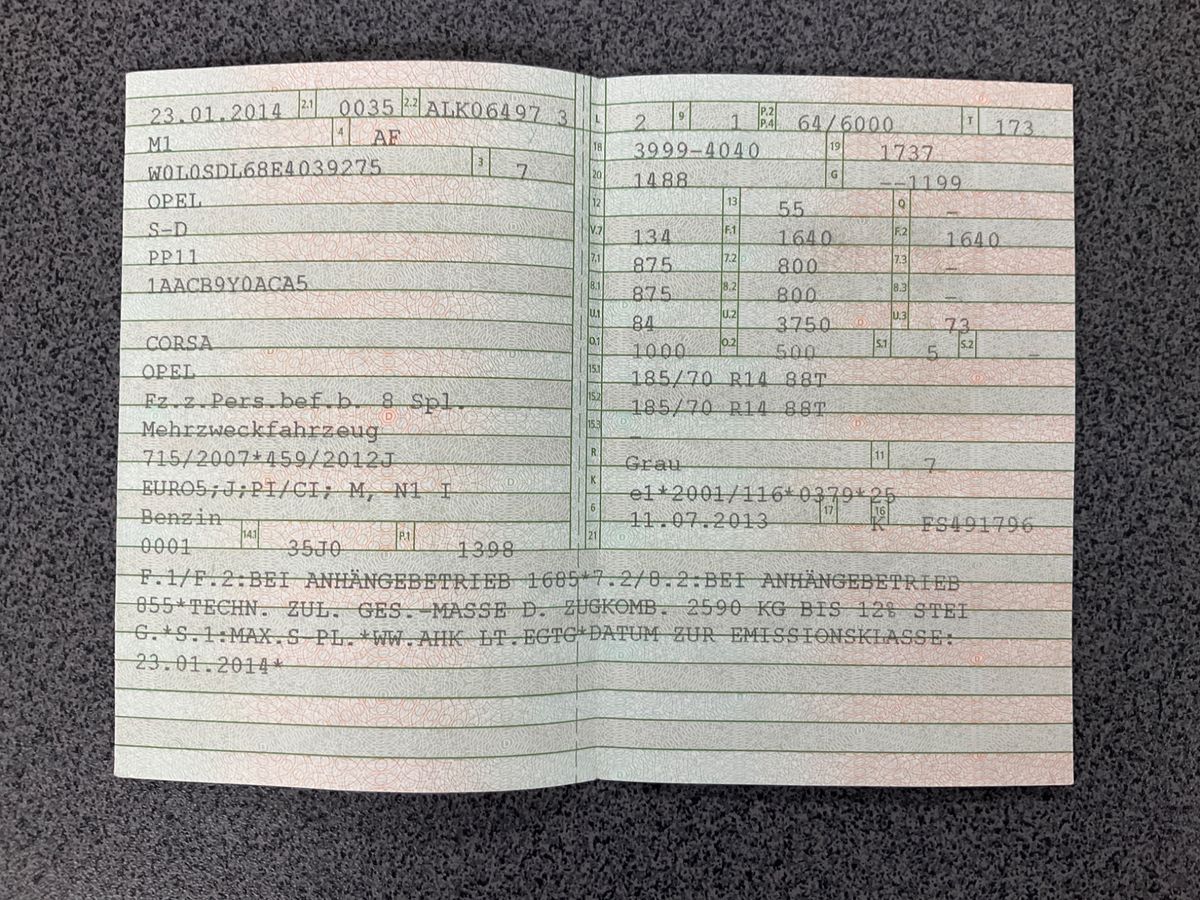 23.01.2014 2.1 0035 2.2 ALK06497 3
M1 4 AF
W0L0SDL68E4039275 3 7
OPEL
S-D
PP11
1AACB9Y0ACA5
CORSA
OPEL
Fz.z.Pers.bef.b. 8 Spl.
Mehrzweckfahrzeug
715/2007*459/2012J
EURO5;J;PI/CI; M, N1 I
Benzin
0001 14.1 35J0 P.1 1398
L 2 9 1 P.2 P.4 64/6000 T 173
18 3999-4040 19 1737
20 1488 G --1199
12 13 55 Q -
V.7 134 F.1 1640 F.2 1640
7.1 875 7.2 800 7.3 -
8.1 875 8.2 800 8.3 -
U.1 84 U.2 3750 U.3 73
O.1 1000 O.2 500 S.1 5 S.2 -
15.1 185/70 R14 88T
15.2 185/70 R14 88T
15.3 -
R Grau 11 7
K e1*2001/116*0379*25
6 11.07.2013 17 K 16 FS491796
21
F.1/F.2:BEI ANHÄNGEBETRIEB 1685*7.2/8.2:BEI ANHÄNGEBETRIEB
855*TECHN. ZUL. GES.-MASSE D. ZUGKOMB. 2590 KG BIS 12% STEI
G.*S.1:MAX.5 PL.*WW.AHK LT.EGTG*DATUM ZUR EMISSIONSKLASSE:
23.01.2014*